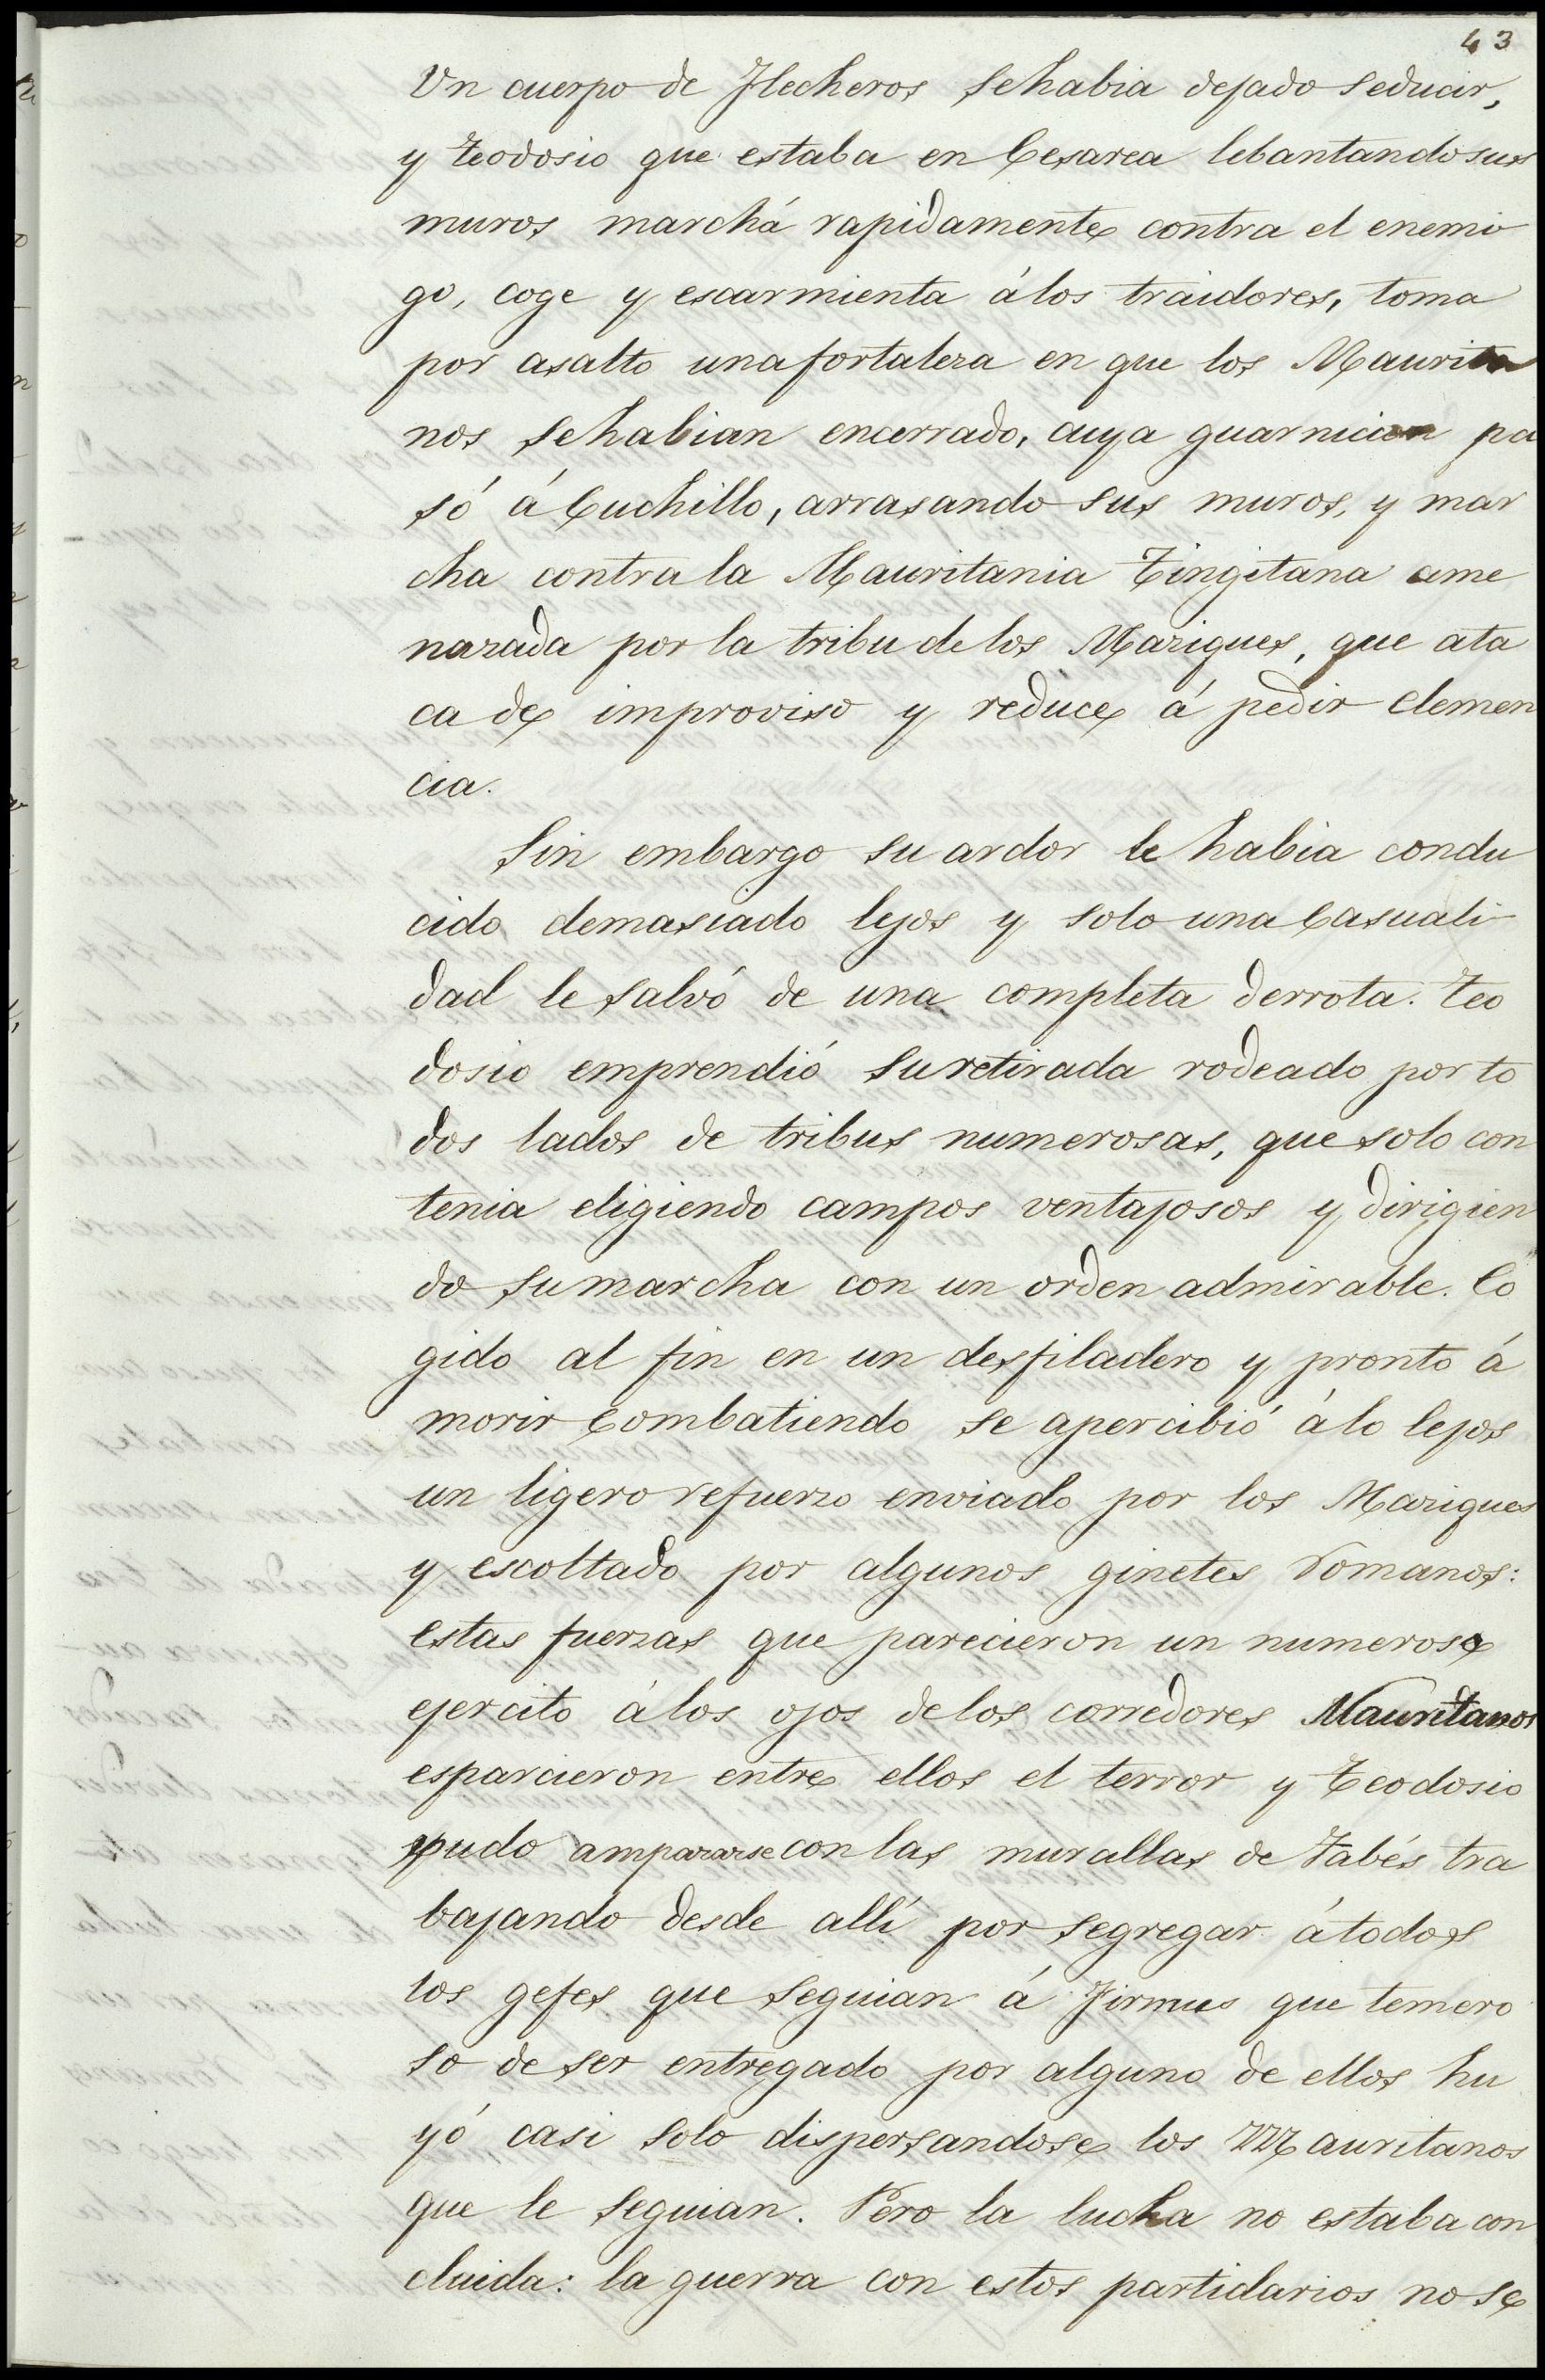 43
Un cuerpo de Flecheros se habia dejado seducir,
y Teodosio que estaba en Cesarea lebantando sus
muros marchá rapidamente contra el enemi
go, coge y escarmienta á los traidores, toma
por asalto una fortaleza en que los Maurita
nos se habian encerrado, cuya guarnicion pa
só á Cuchillo, arrasando sus muros, y mar
cha contra la Mauritania Tingitana ame
nazada por la tribu de los Maziques, que ata
ca de improviso y reduce á pedir clemen
cia.
Sin embargo su ardor le habia condu
cido demasiado lejos y solo una Casuali
dad le salvó de una completa derrota. Teo
dosio emprendió su retirada rodeado por to
dos lados de tribus numerosas, que solo con
tenia eligiendo campos ventajosos y dirigien
do su marcha con un orden admirable. Co
gido al fin en un desfiladero y pronto á
morir combatiendo se apercibió á lo lejos
un ligero refuerzo enviado por los Maziques
y escoltado por algunos ginetes romanos:
estas fuerzas que parecieron un numeroso
ejercito á los ojos de los corredores Mauritanos
esparcieron entre ellos el terror y Teodosio
pudo ampararse con las murallas de Tabés tra
bajando desde allí por segregar á todos
los gefes que seguian á Firmus que temero
so de ser entregado por alguno de ellos hu
yó casi solo dispersandose los Mauritanos
que le seguian. Pero la lucha no estaba con
cluida: la guerra con estos partidarios no se